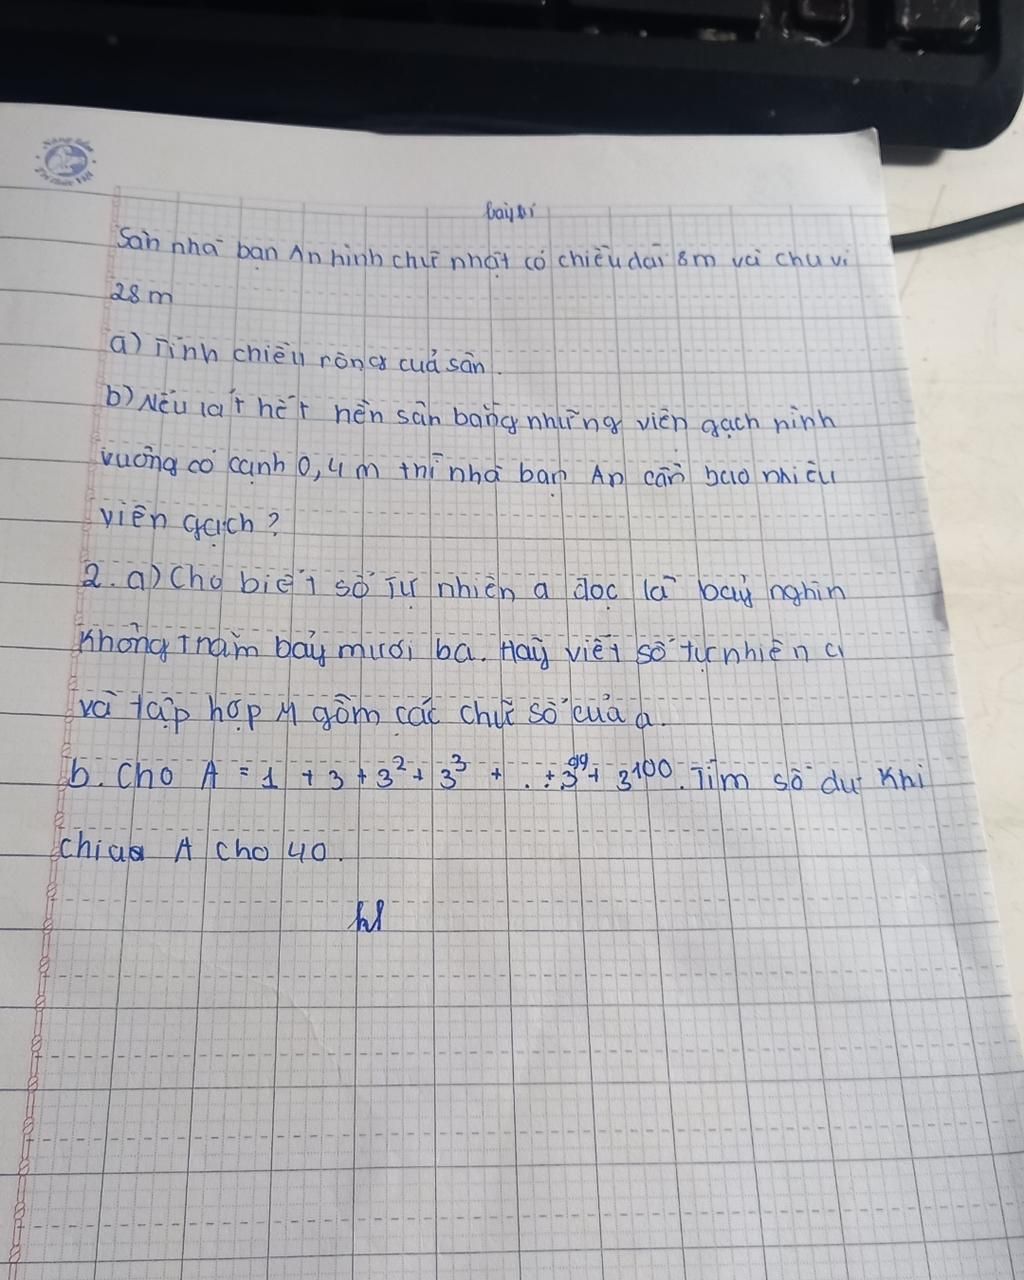 Sân nhà bạn An hình chữ nhật có chiều dài 8m và chu vi
28 m
a) Tính chiều rộng của sân.
b) Nếu lát hết nền sân bằng những viên gạch hình
vuông có cạnh 0,4 m thì nhà bạn An cần bao nhiêu
viên gạch?
2. a) Cho biết số tự nhiên a đọc là bảy nghìn
không trăm bảy mươi ba. Hãy viết số tự nhiên a
và tập hợp M gồm các chữ số của a.
b. Cho A = 1 + 3 + 3² + 3³ + ... + 3⁹⁹ + 3¹⁰⁰. Tìm số dư khi
chia A cho 40.